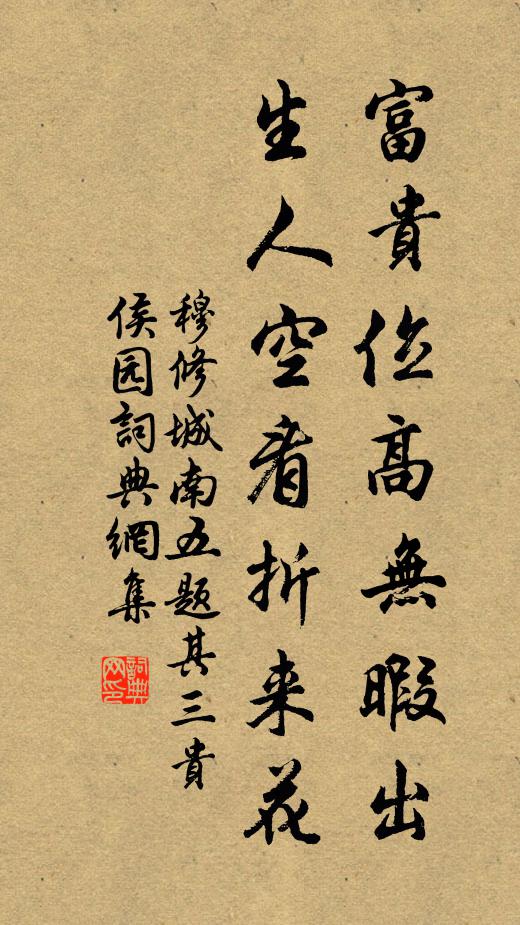 富貴位高無暇出
生人空看折来花
穆修城南五题其三貴
侯园詞典網集
詞典网印